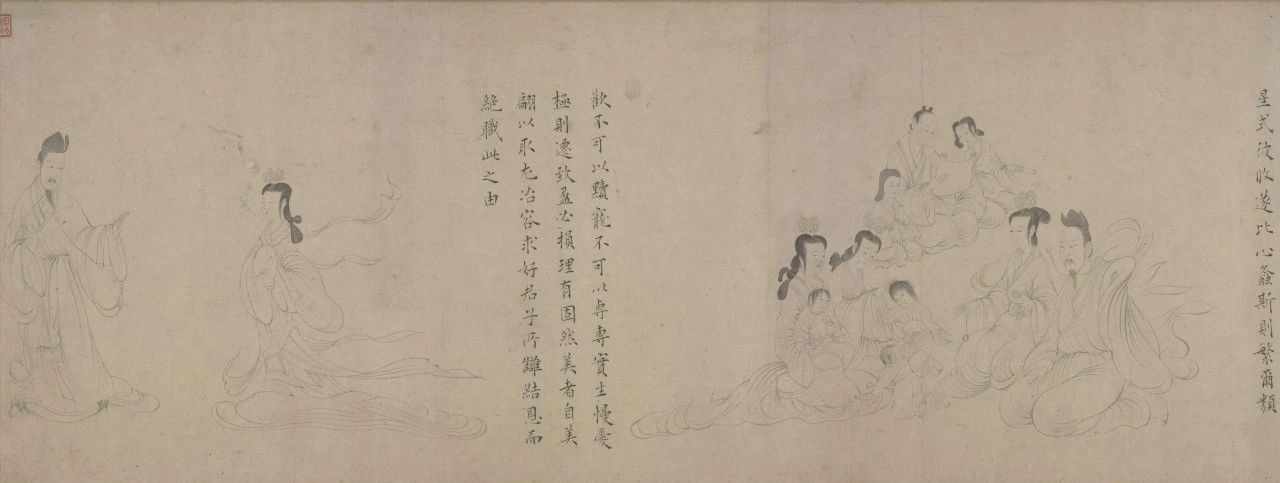 星式彼攸遂比心螽斯則繁爾類
歡不可以黷寵不可以専専實生慢愛
極則遷致盈必損理有固然美者自美
翩以取尤冶容求好君子所讎結恩而
絶職此之由